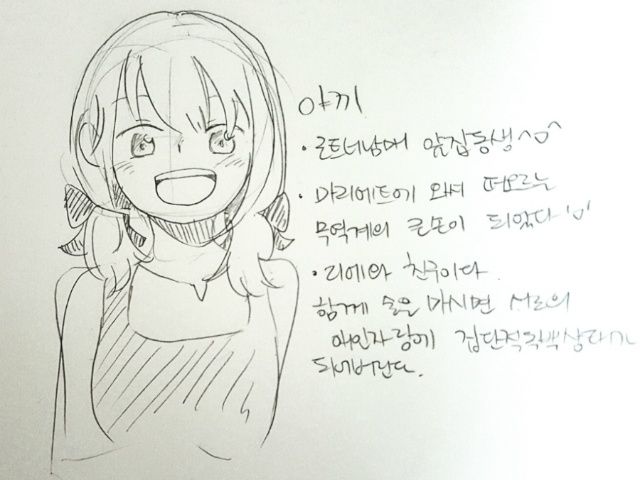 야끼
· 로트네남매 앞집동생^o^
· 마리에트에 와서 떠오르는
무역계의 큰손이 되었다 'o'
· 리에와 친구이다.
함께 술을 마시면 서로의
애인자랑에
되어버린다.